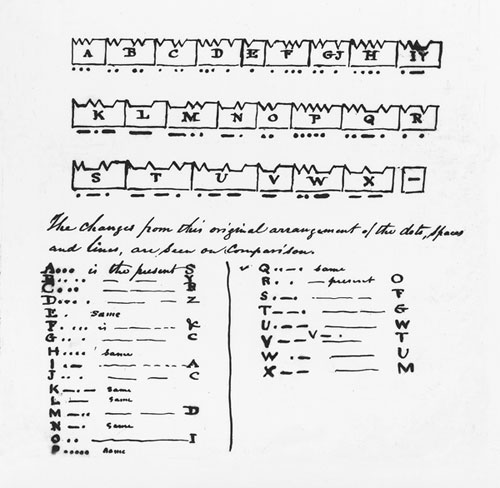 A B C D E F GJ H IY
K L M N O P Q R
S T U V W X –
The changes from this original arrangement of the dots, spaces
and lines, are seen on Comparison.
A is the present S
B Y
C R
D Z
E . same
F is
G C
H .... same
I A
J C
K same
L same
M D
N same
O I
P ..... same
Q same
R present O
S F
T G
U W
V T
W U
X M